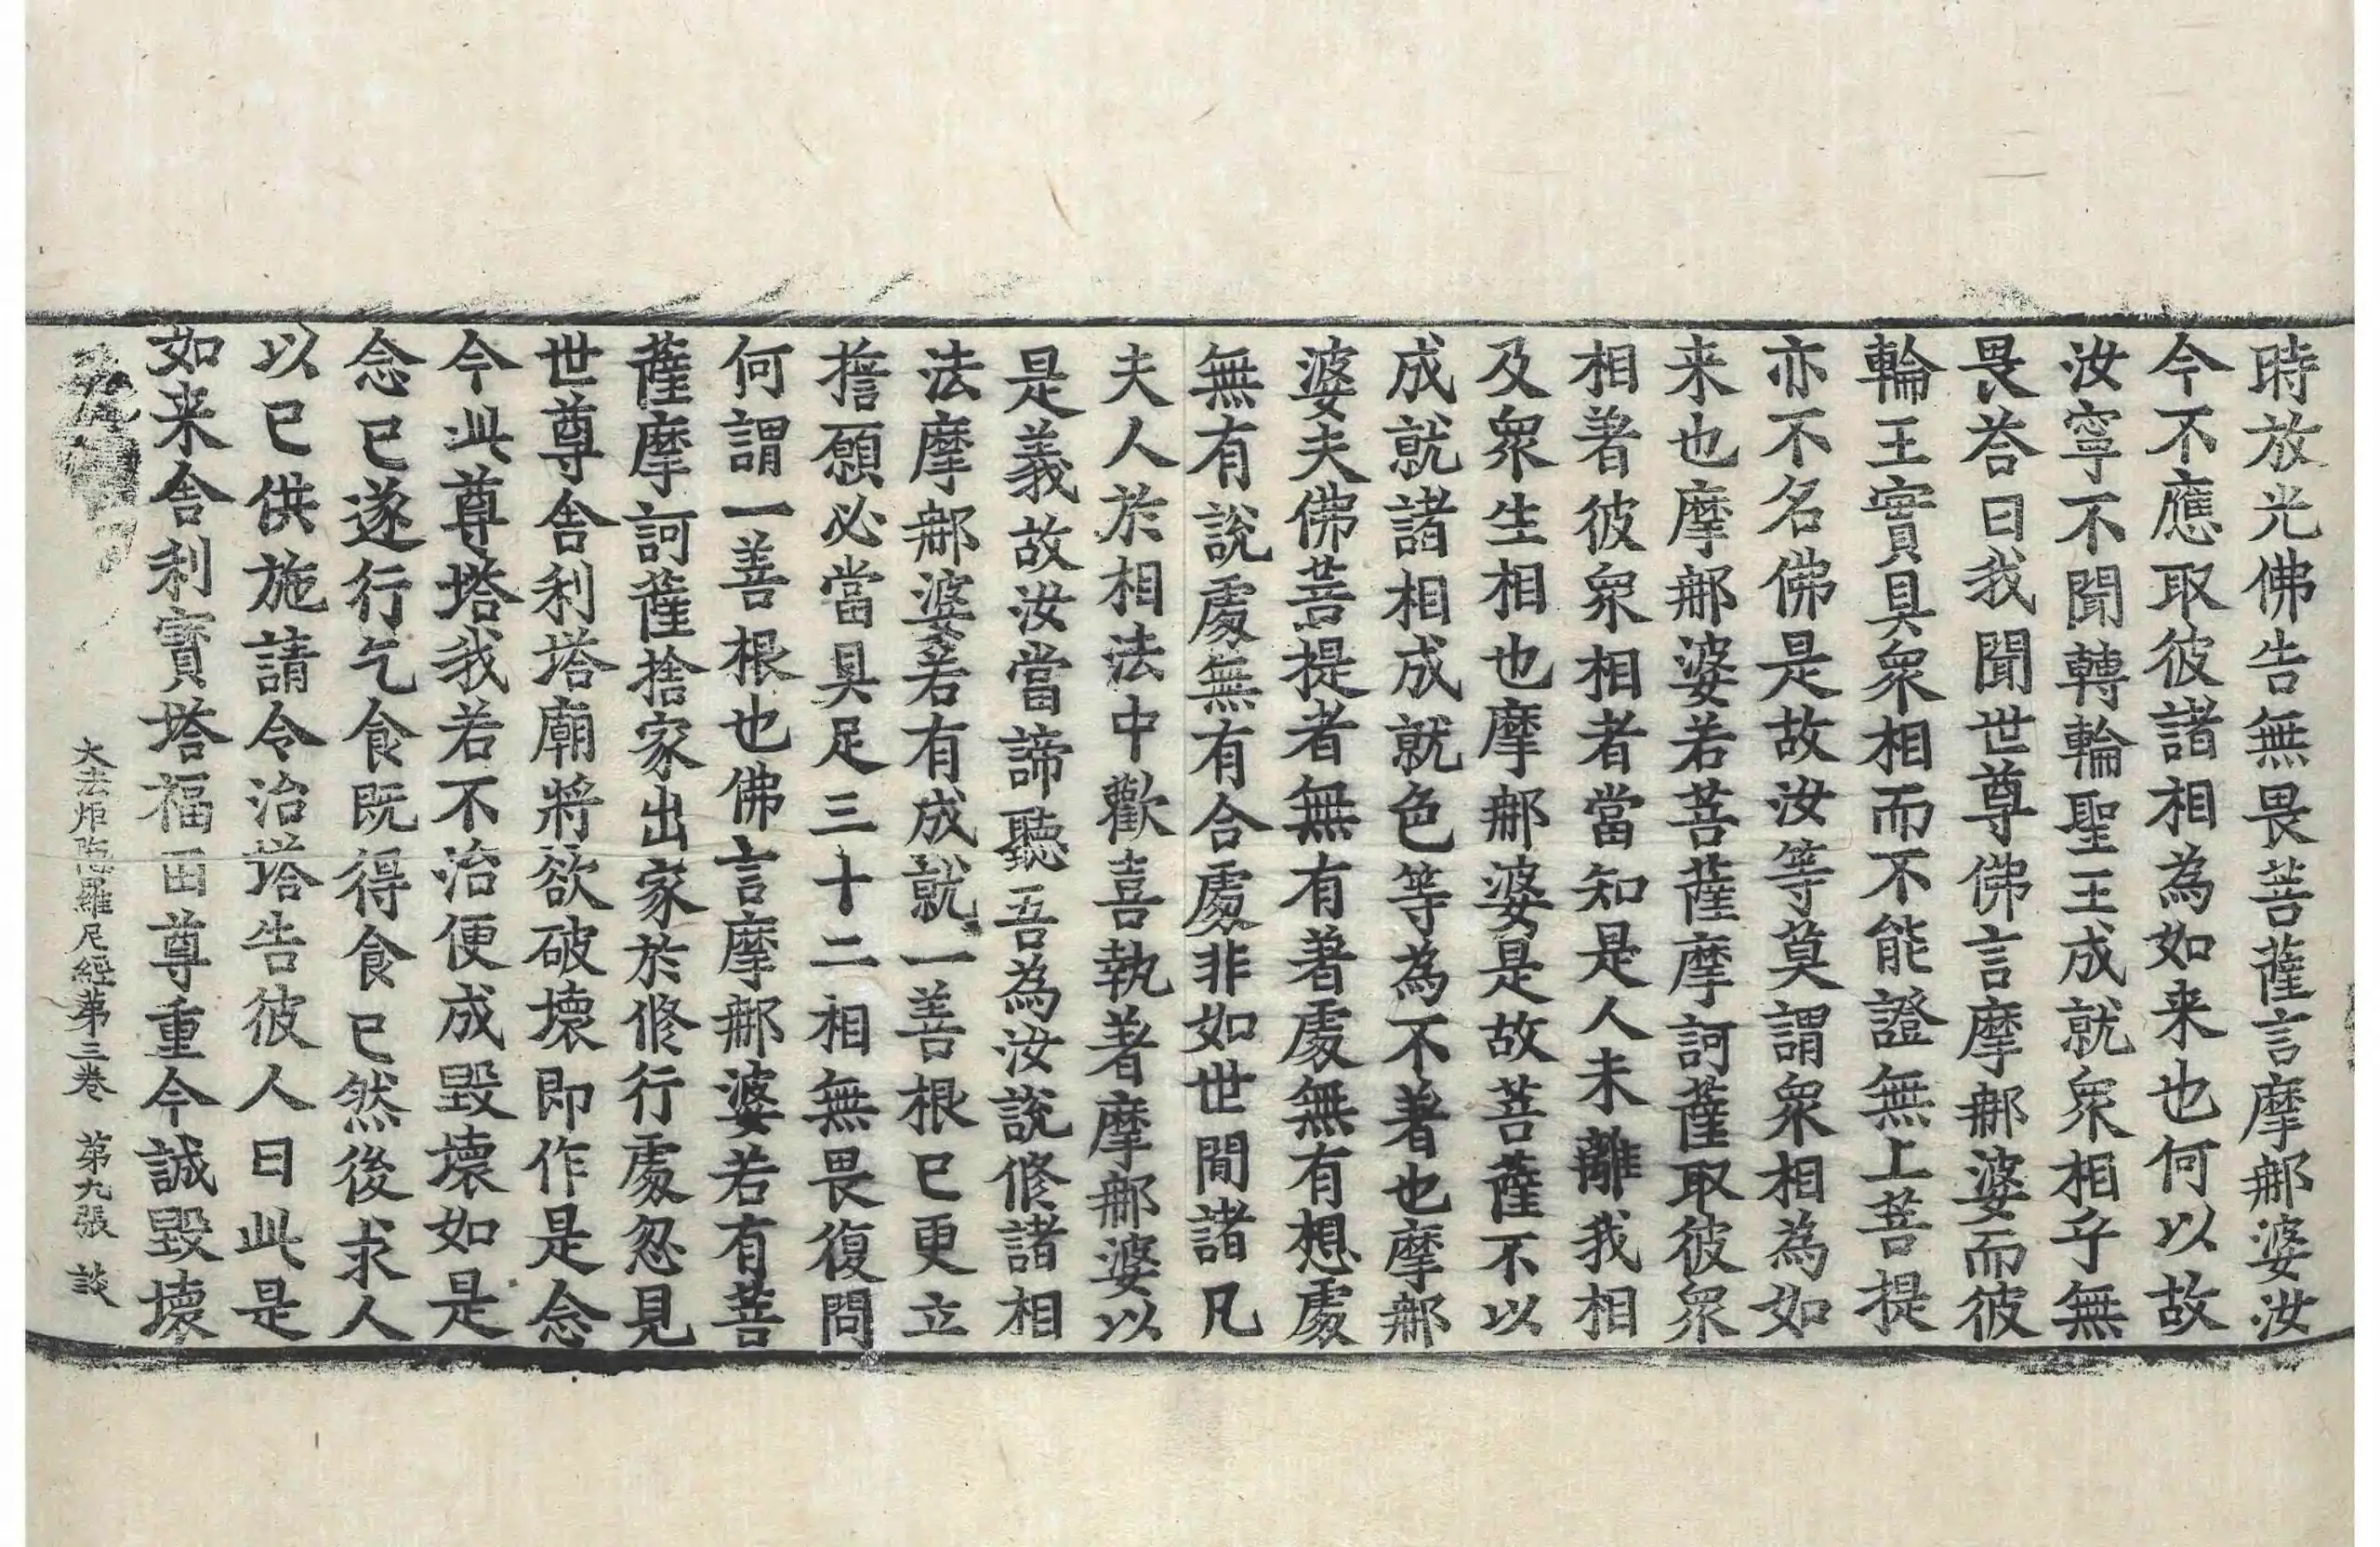 時放光佛告無畏菩薩言摩郍婆汝
今不應取彼諸相為如来也何以故
汝寧不聞轉輪聖王成就衆相乎無
畏荅曰我聞世尊佛言摩郍婆而彼
輪王實具衆相而不能證無上菩提
亦不名佛是故汝等莫謂衆相為如
来也摩郍婆若菩薩摩訶薩取彼衆
相著彼衆相者當知是人未離我相
及衆生相也摩郍婆是故菩薩不以
成就諸相成就色等為不著也摩郍
婆夫佛菩提者無有著處無有想處
無有說處無有合處非如世間諸凡
夫人於相法中歡喜執著摩郍婆以
是義故汝當諦聽吾為汝說修諸相
法摩郍婆若有成就一善根已更立
擔願必當具足三十二相無畏復問
何謂一善根也佛言摩郍婆若有菩
薩摩訶薩捨家出家於修行處忽見
世尊舍利塔廟將欲破壞即作是念
今此尊塔我若不治便成毀壞如是
念已遂行乞食既得食已然後求人
以已供施請令治塔告彼人曰此是
如来舍利寶塔福田尊重今誠毀壞
大法炬陁羅尼經第三卷 第九張 談